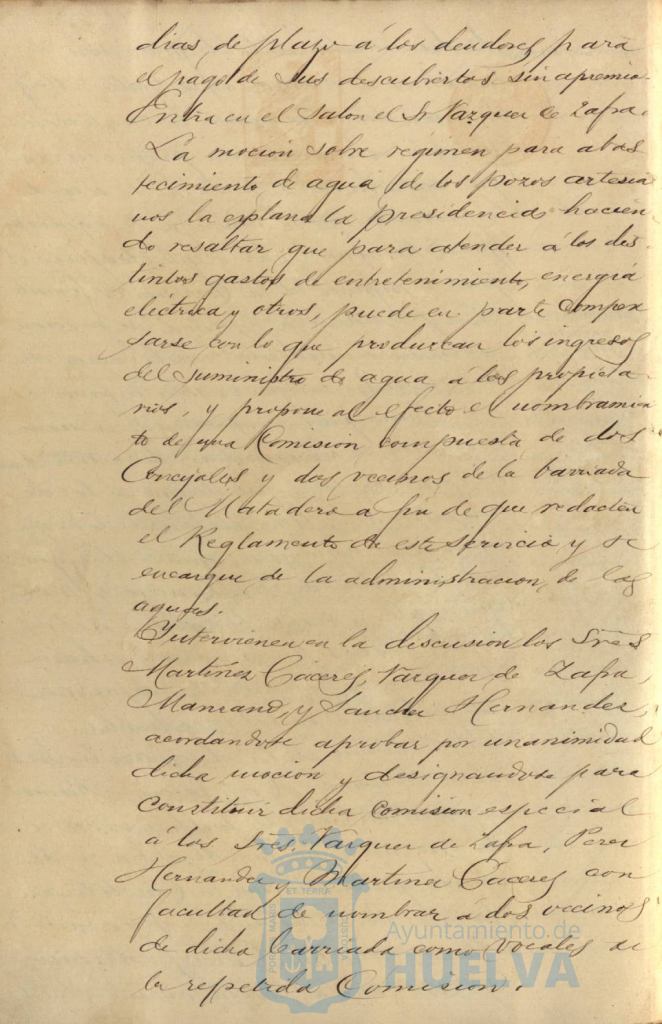 dias, de plazo á los deudores para
el pago de sus descubiertos sin apremio.
Entra en el salon el Sr Vazquez de Zafra.
La moción sobre régimen para abas
tecimiento de agua de los pozos artesia
nos la explana la presidencia, hacien
do resaltar que para atender á los dis
tintos gastos de entretenimiento, energia
eléctrica y otros, puede en parte compen
sarse con lo que produzcan los ingresos
del suministro de agua á los propieta
rios, y propone al efecto el nombramien
to de una Comision compuesta de dos
Concejales y dos vecinos de la barriada
del Matadero a fin de que redacten
el Reglamento de este servicio y se
encargue de la administracion de las
aguas.
Intervienen en la discusion los Sres
Martinez Cáceres, Vazquez de Zafra,
Manzano, y Sanchez Hernandez,
acordandose aprobar por unanimidad
dicha mocion y designandose para
constituir dicha comision especial
á los Sres. Vazquez de Zafra, Perez
Hernandez y Martinez Cáceres con
facultad de nombrar á dos vecinos
de dicha barriada como vocales de
la repetida Comision.
Ayuntamiento de
HUELVA